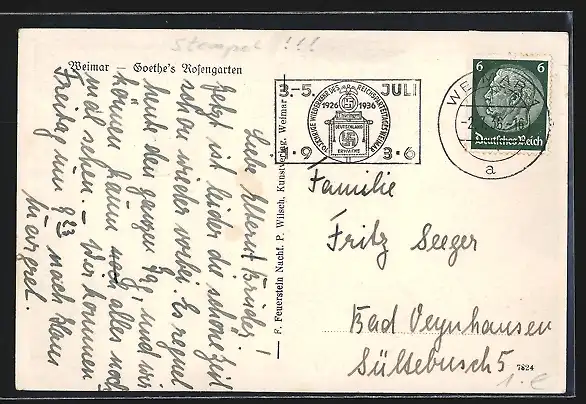 Stempel!!!
Weimar — Goethe's Rosengarten
Liebe Eltern u. Brüder!
Jetzt ist leider die schöne Zeit
schon wieder vorbei. Es regnet
heute den ganzen Tag, und wir
können kaum noch alles noch
mal sehen. – Wir kommen
Freitag um 9 23 nach Haus
Margret.
F. Feuerstein Nachf. P. Wilsch, Kunstverlag, Weimar
3.-5. JULI
10JÄHRIGE WIEDERKEHR DES REICHSPARTEITAGES WEIMAR
1926 1936
DEUTSCHLAND
ERWACHE
1 · 9 3 · 6
WE
a
6 6
Deutsches Reich
Familie
Fritz Seeger
Bad Oeynhausen
Sültebusch 5
7824